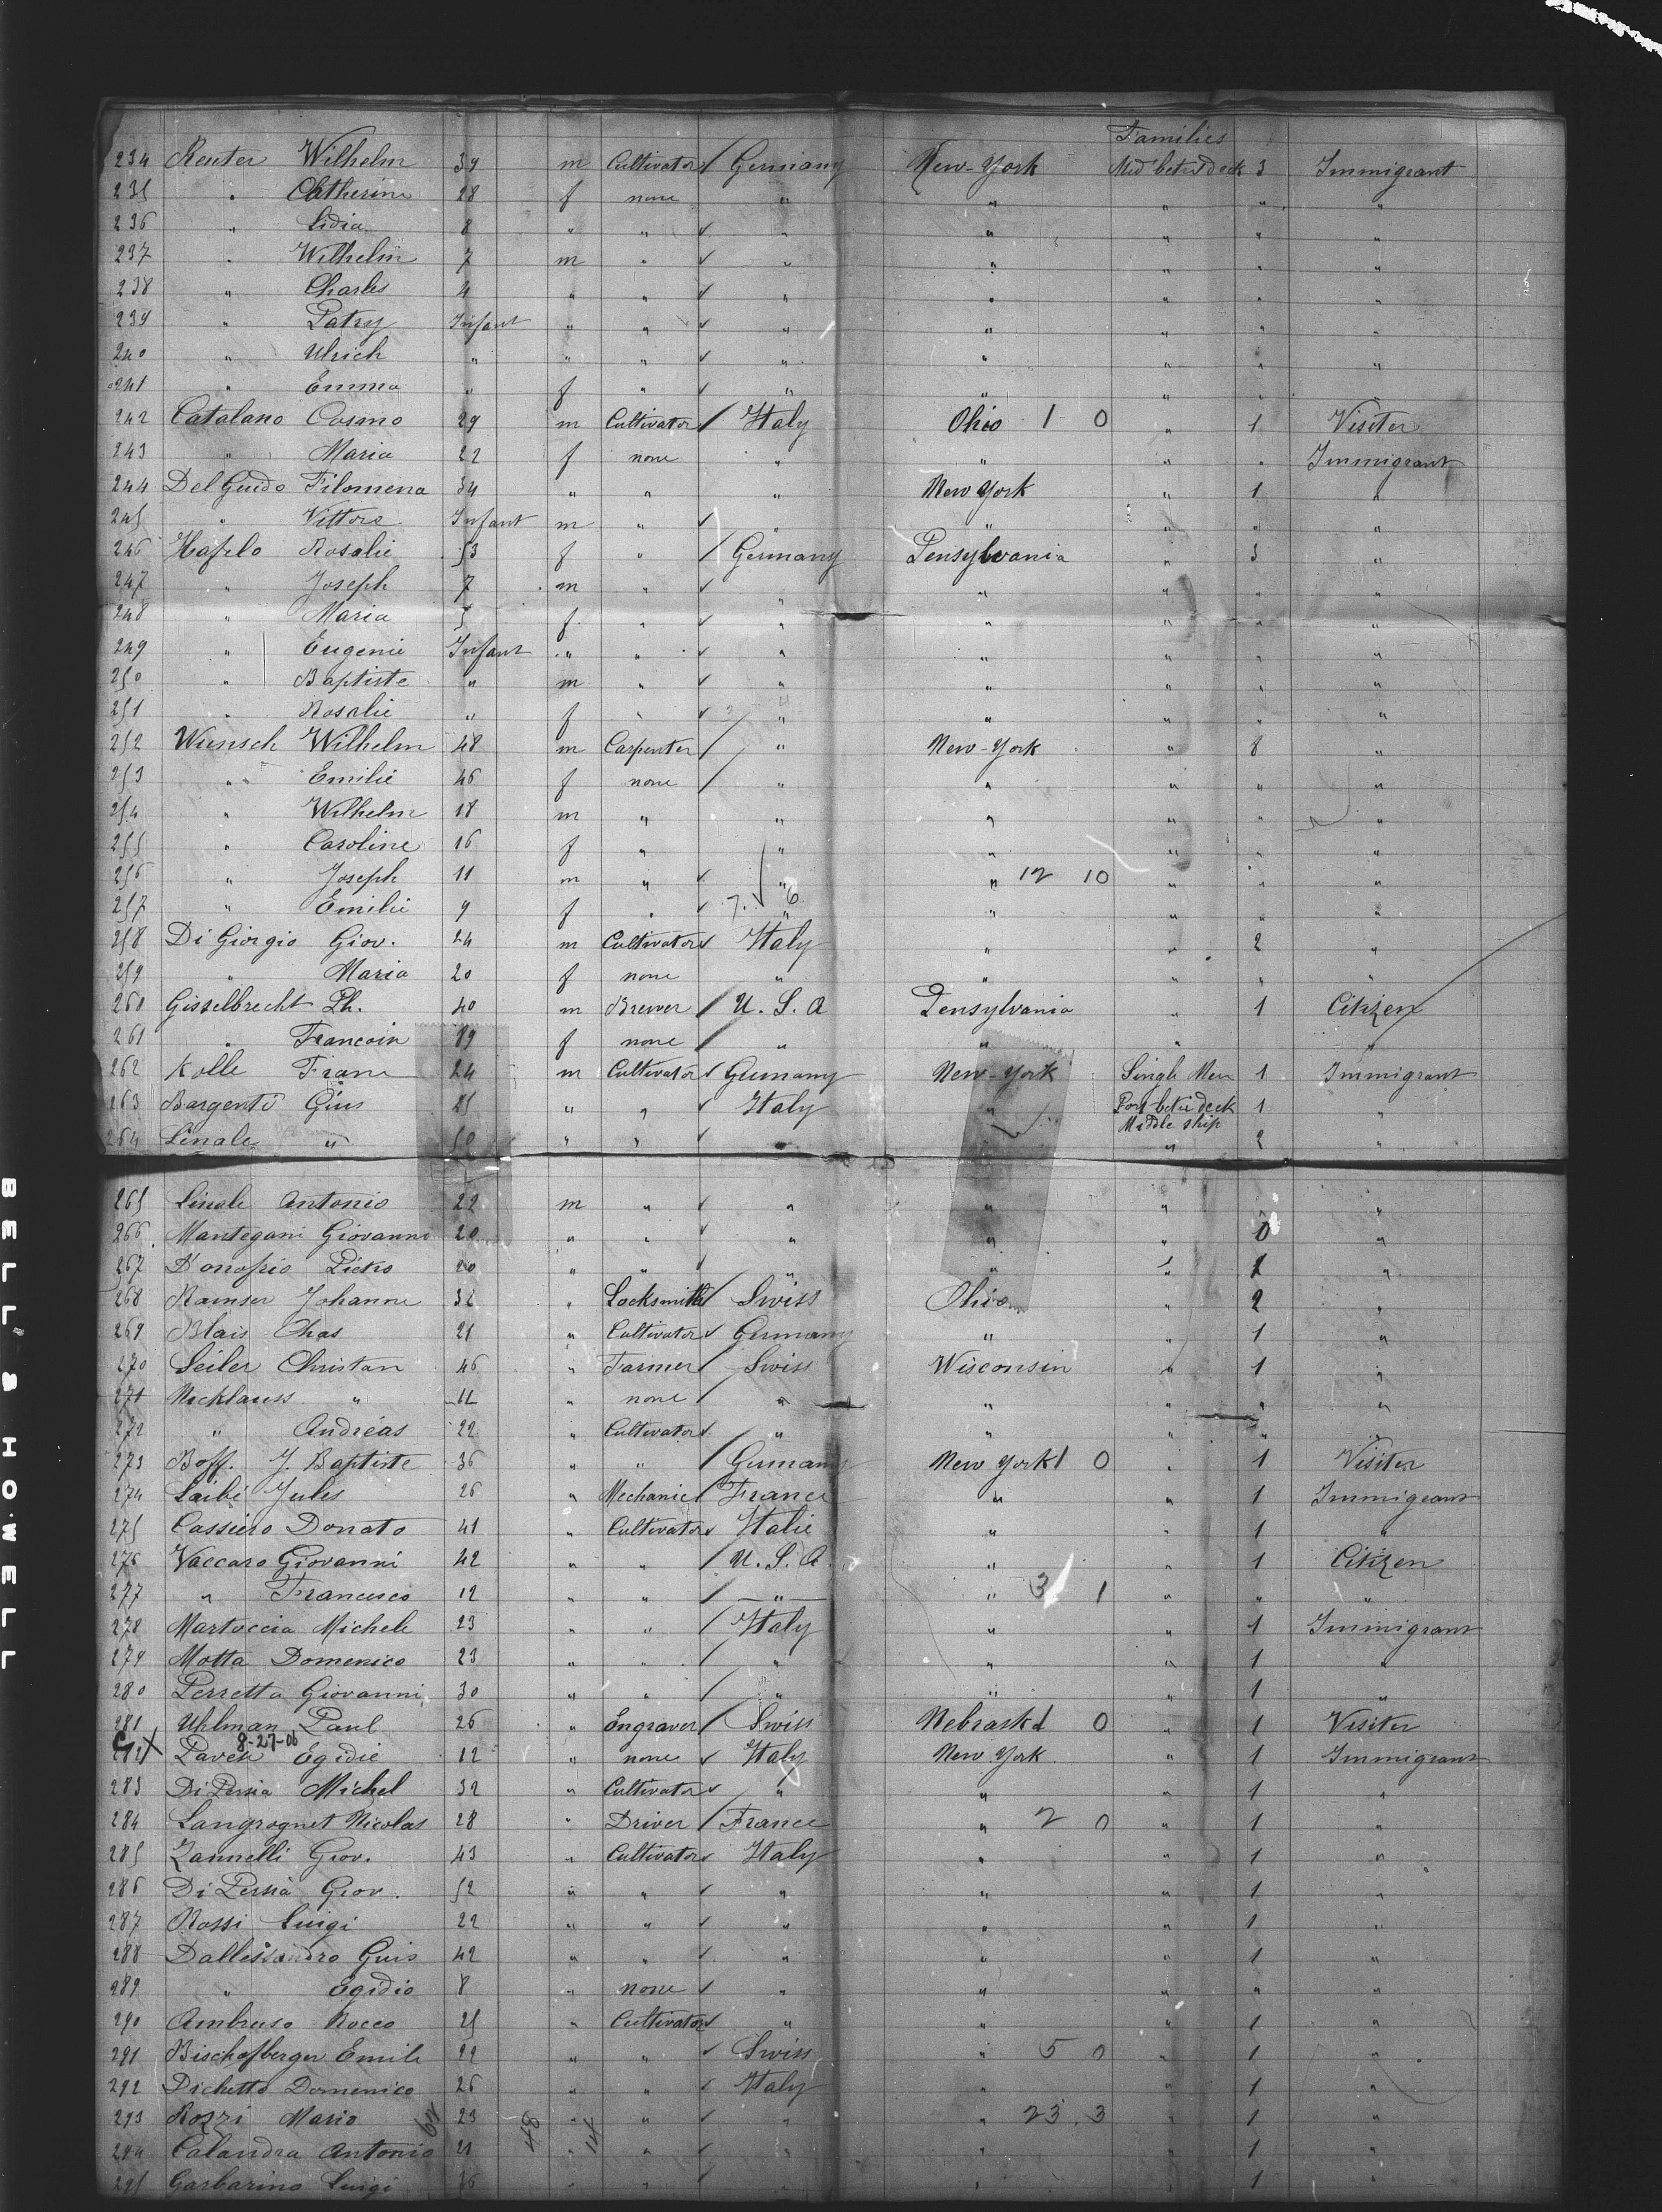 Families
234 Reuter Wilhelm 39 m Cultivator / Germany New-York Mid betw deck 3 Immigrant
235 " Catherine 28 f none " " " " "
236 " Lidia 8 " " ✓ " " " " "
237 " Wilhelm 7 m " ✓ " " " " "
238 " Charles 4 " " ✓ " " " " "
239 " Infant " " ✓ " " " " "
240 " Ulrich " " " ✓ " " " " "
241 " Emma " f " ✓ " " " " "
242 Catalano Cosmo 29 m Cultivator / Italy Ohio 1 0 " 1 Visiter
243 " Maria 22 f none " " " " Immigrant
244 Del Guido Filomena 34 " " " New York " 1 "
245 " Vittore Infant m " ✓ " " " " "
246 Rosalie 53 f " / Germany Pensylvania " 3 "
247 " Joseph 7 m " ✓ " " " " "
248 " Maria 5 f " ✓ " " " " "
249 " Eugenie Infant " " ✓ " " " " "
250 " Baptiste " m " ✓ " " " " "
251 " Rosalie " f " ✓ " " " " "
252 Wunsch Wilhelm 48 m Carpenter / " New-York " 8 "
253 " Emilie 46 f none / " " " " "
254 " Wilhelm 18 m " " " " " "
255 " Caroline 16 f " " " " " "
256 " Joseph 11 m " ✓ " " 12 10 " " "
257 " Emilie 9 f " ✓ 7. 6 " " " " "
258 Di Giorgio Giov. 24 m Cultivator ✓ Italy " " 2 "
259 " Maria 20 f none " " " " "
260 Gisselbrecht Ph. 40 m Brewer / U. S. A Pensylvania " 1 Citizen
261 " Francoin f none / " " " " "
262 Kolle Franc 24 m Cultivator ✓ Germany New-York Single Men 1 Immigrant
263 Bargenti Gius 25 " " ✓ Italy " For betw deck 1 "
Middle ship
264 Linale " 50 " " ✓ " 2 "
265 Linale Antonio 22 m " ✓ " " " "
266 Mantegani Giovanni 20 " " ✓ " " " 0 "
267 D'onofrio Pietro 20 " " ✓ " " " 1 "
268 Ramser Johanne 32 " Locksmith / Swiss Ohio " 2 "
269 Blais Chas 21 " Cultivator ✓ Germany " " 1 "
270 Seiler Christan 46 " Farmer / Swiss Wisconsin " 1 "
271 Nicklauss " 11 " none / " " " " "
272 " Andréas 22 " Cultivator ✓ " " " " "
273 Boff. J. Baptiste 36 " " / Germany New York 1 0 " 1 Visiter
274 Laibé Jules 26 " Mechanic / France " " 1 Immigrant
275 Cassiero Donato 41 " Cultivator ✓ Italie " " 1 "
276 Vaccaro Giovanni 42 " " / U. S. A " " 1 Citizen
277 " Francesco 12 " " / " " 3 1 " " "
278 Martoccia Michele 23 " " / Italy " " 1 Immigrant
279 Motta Domenico 23 " " / " " " 1 "
280 Perretta Giovanni 30 " " / " " " 1 "
281 Uhlman Paul 26 " Engraver / Swiss Nebraska 0 " 1 Visiter
8-27-06
Egidie 12 " none ✓ Italy New York " 1 Immigrant
283 Di Persia Michel 32 " Cultivator ✓ " " " 1 "
284 Langrognet Nicolas 28 " Driver / France " 2 0 " 1 "
285 Zannelli Giov. 43 " Cultivator ✓ Italy " " 1 "
286 Di Persia Giov. 52 " " ✓ " " " 1 "
287 Rossi Luigi 22 " " ✓ " " " 1 "
288 Dallessandro Guis 42 " " ✓ " " " 1 "
289 " Egidio 8 " none ✓ " " " " "
290 Ambruso Rocco 25 " Cultivator ✓ " " " 1 "
291 Bischofberger Emile 22 " " ✓ Swiss " 5 0 " 1 "
292 Pichetto Domenico 26 " " ✓ Italy " " 1 "
293 Rozzi Mario 23 " " ✓ " " 23 3 " 1 "
294 Calandra Antonio 21 " " ✓ " " " 1 "
295 Garbarino Luigi 36 " " ✓ " " " 1 "
BELL & HOWELL